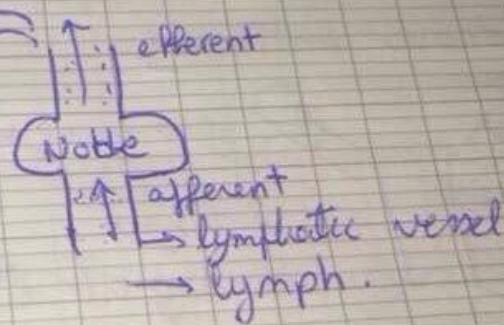 efferent
Node
afferent
→ lymphatic vessel
→ lymph.